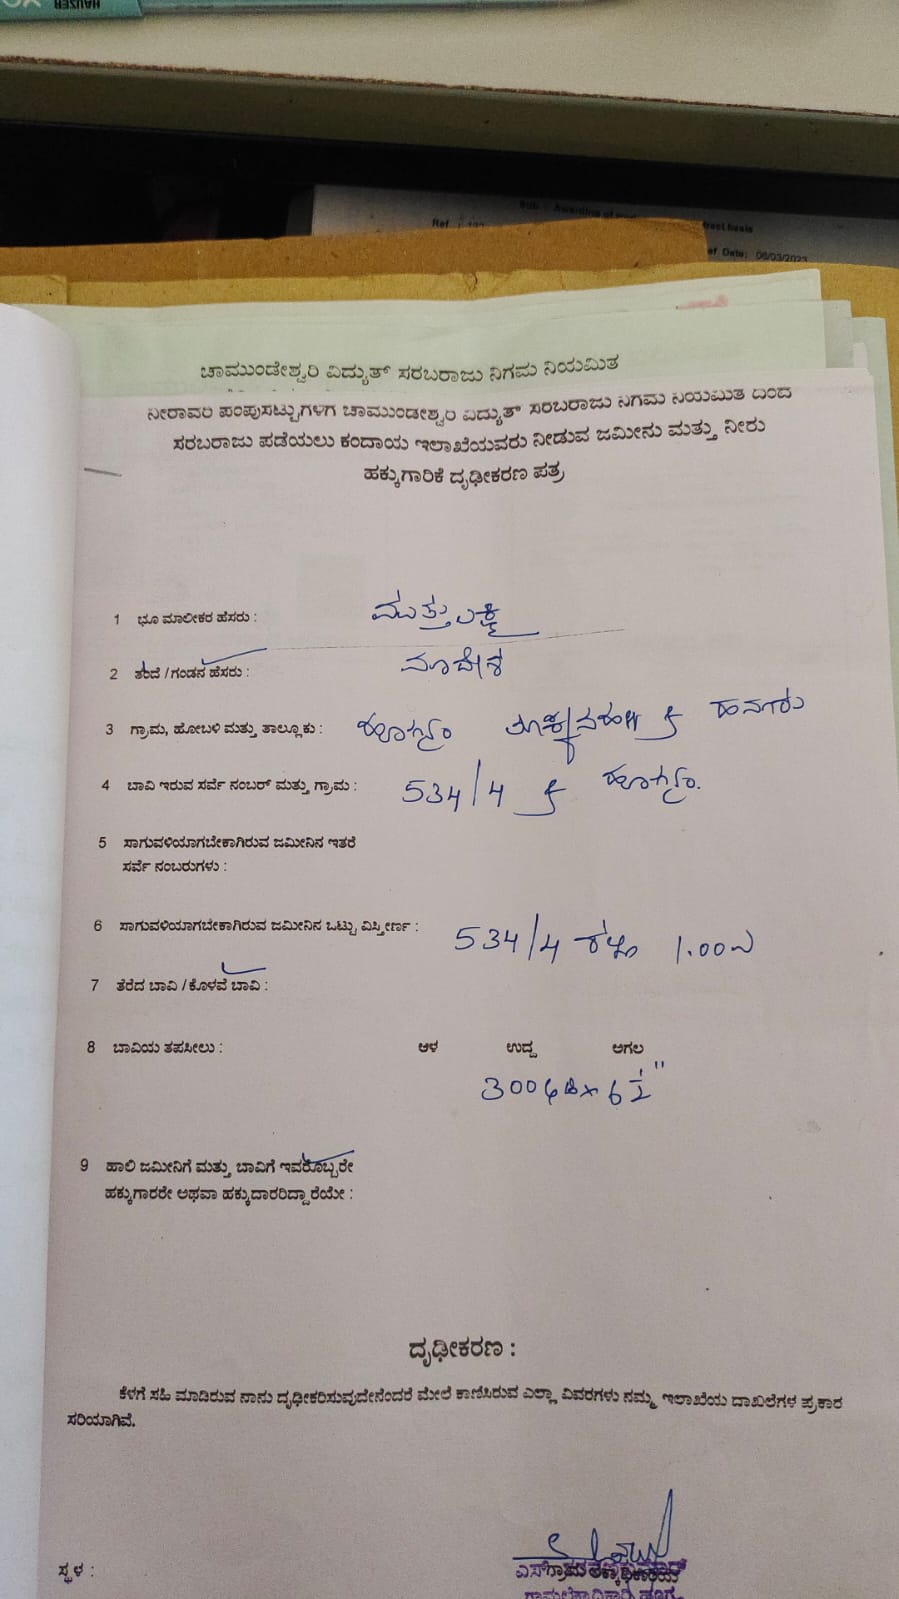 HAUSER
Sub : Awarding of
Ref :
Ref Date: 06/03/2023
ಚಾಮುಂಡೇಶ್ವರಿ ವಿದ್ಯುತ್ ಸರಬರಾಜು ನಿಗಮ ನಿಯಮಿತ
ನೀರಾವರಿ ಪಂಪುಸೆಟ್ಟುಗಳಿಗೆ ಚಾಮುಂಡೇಶ್ವರಿ ವಿದ್ಯುತ್ ಸರಬರಾಜು ನಿಗಮ ನಿಯಮಿತ ದಿಂದ
ಸರಬರಾಜು ಪಡೆಯಲು ಕಂದಾಯ ಇಲಾಖೆಯವರು ನೀಡುವ ಜಮೀನು ಮತ್ತು ನೀರು
ಹಕ್ಕುಗಾರಿಕೆ ದೃಢೀಕರಣ ಪತ್ರ
1 ಭೂ ಮಾಲೀಕರ ಹೆಸರು : ಮುತ್ತುಲಕ್ಷ್ಮಿ
2 ತಂದೆ / ಗಂಡನ ಹೆಸರು : ಮಾದೇಶ
3 ಗ್ರಾಮ, ಹೋಬಳಿ ಮತ್ತು ತಾಲ್ಲೂಕು : ಹೂಗ್ಯಂ ಹನೂರು
4 ಬಾವಿ ಇರುವ ಸರ್ವೆ ನಂಬರ್ ಮತ್ತು ಗ್ರಾಮ : 534/4 ಹೂಗ್ಯಂ.
5 ಸಾಗುವಳಿಯಾಗಬೇಕಾಗಿರುವ ಜಮೀನಿನ ಇತರೆ
ಸರ್ವೆ ನಂಬರುಗಳು :
6 ಸಾಗುವಳಿಯಾಗಬೇಕಾಗಿರುವ ಜಮೀನಿನ ಒಟ್ಟು ವಿಸ್ತೀರ್ಣ : 534/4 1.00ಎ
7 ತೆರೆದ ಬಾವಿ / ಕೊಳವೆ ಬಾವಿ :
8 ಬಾವಿಯ ತಪಸೀಲು : ಆಳ ಉದ್ದ ಅಗಲ
6 1/2"
9 ಹಾಲಿ ಜಮೀನಿಗೆ ಮತ್ತು ಬಾವಿಗೆ ಇವರೊಬ್ಬರೇ
ಹಕ್ಕುಗಾರರೇ ಅಥವಾ ಹಕ್ಕುದಾರರಿದ್ದಾರೆಯೇ :
ದೃಢೀಕರಣ :
ಕೆಳಗೆ ಸಹಿ ಮಾಡಿರುವ ನಾನು ದೃಢೀಕರಿಸುವುದೇನೆಂದರೆ ಮೇಲೆ ಕಾಣಿಸಿರುವ ಎಲ್ಲಾ ವಿವರಗಳು ನಮ್ಮ ಇಲಾಖೆಯ ದಾಖಲೆಗಳ ಪ್ರಕಾರ
ಸರಿಯಾಗಿವೆ.
ಸ್ಥಳ :